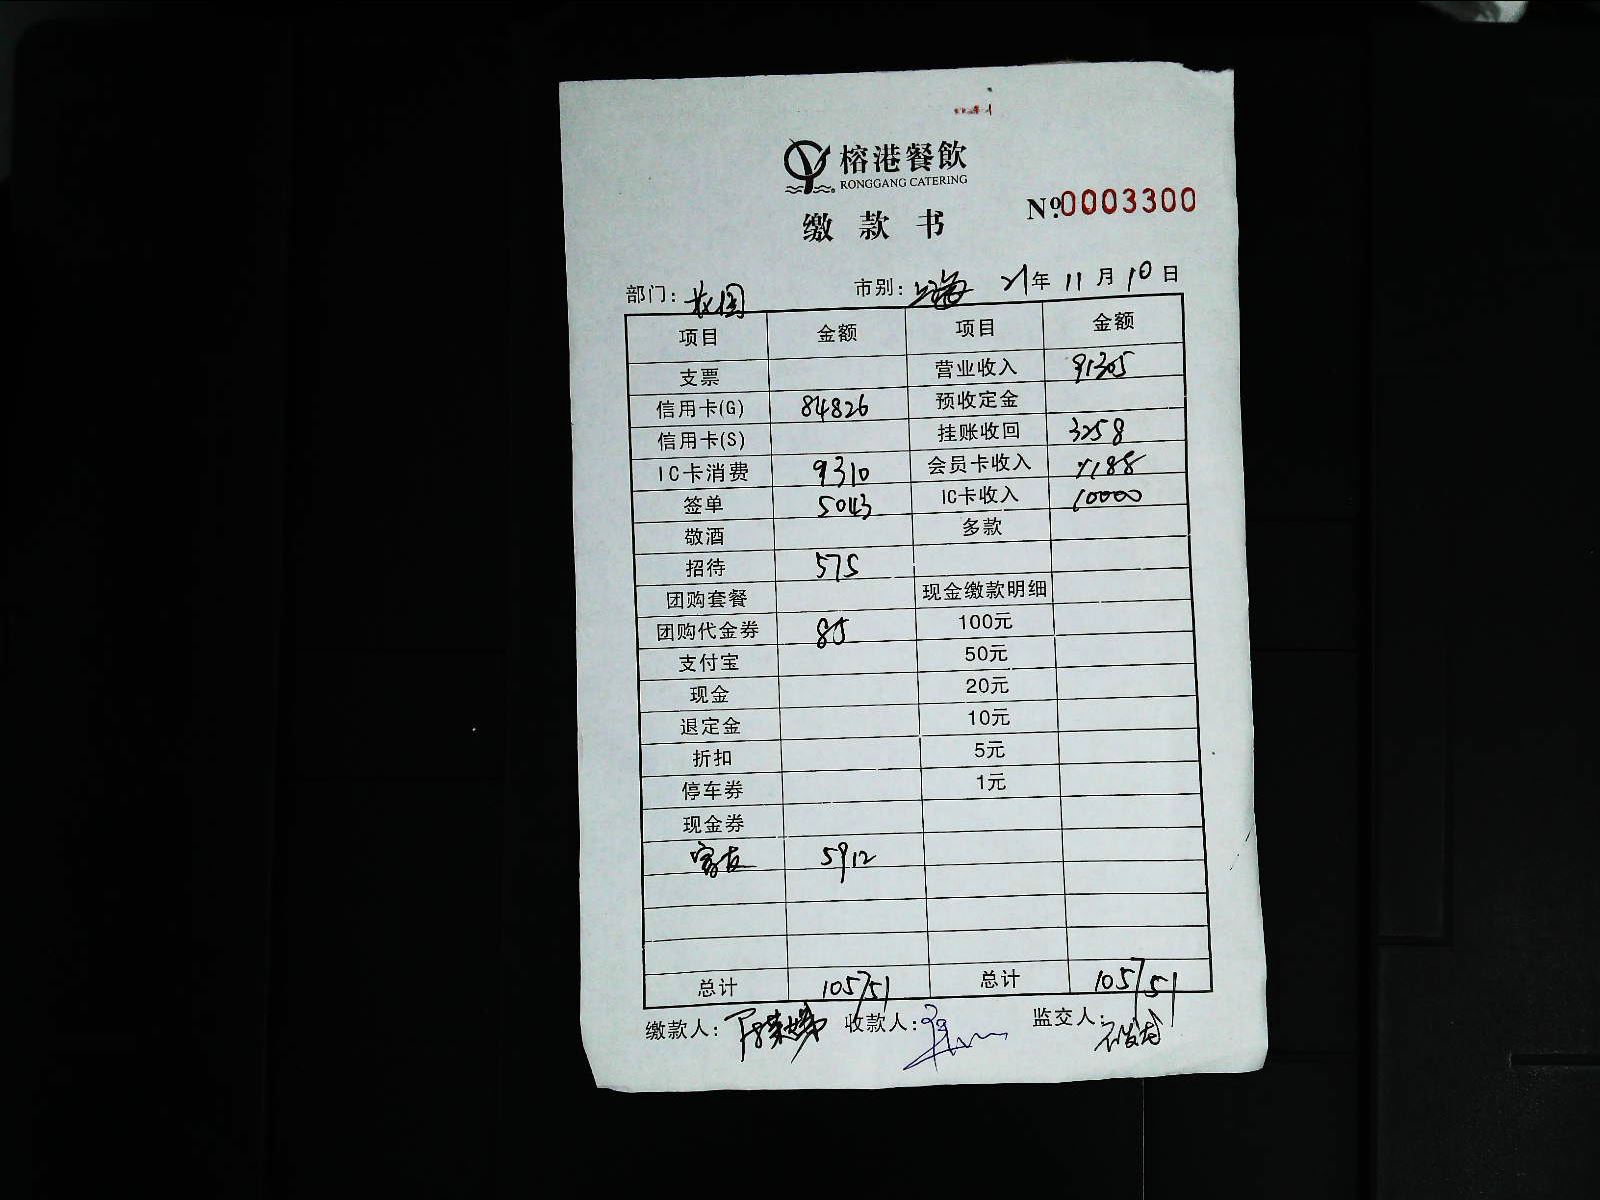 榕港餐飲
RONGGANG CATERING
缴款书 Nº.0003300
部门: 市别: 上海 21年11月10日
项目 金额 项目 金额
支票 营业收入 91305
信用卡(G) 84826 预收定金
信用卡(S) 挂账收回 3258
IC卡消费 9310 会员卡收入 1188
签单 5043 IC卡收入 10000
敬酒 多款
招待 575
团购套餐 现金缴款明细
团购代金券 85 100元
支付宝 50元
现金 20元
退定金 10元
折扣 5元
停车券 1元
现金券
5912
总计 105751 总计 105751
缴款人: 收款人: 监交人: